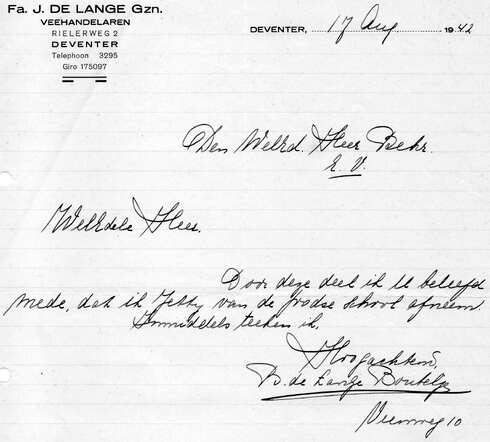 Fa. J. DE LANGE Gzn.
VEEHANDELAREN
RIELERWEG 2
DEVENTER
Telephoon 3295
Giro 175097
DEVENTER, 17 Aug. 1942
Den WelEd. Heer Behr.
E. V.
WelEdele Heer.
Door deze deel ik U beleefd
mede, dat ik Jetty van de joodse school afneem
Inmiddels teeken ik.
Hoogachtend,
B. de Lange